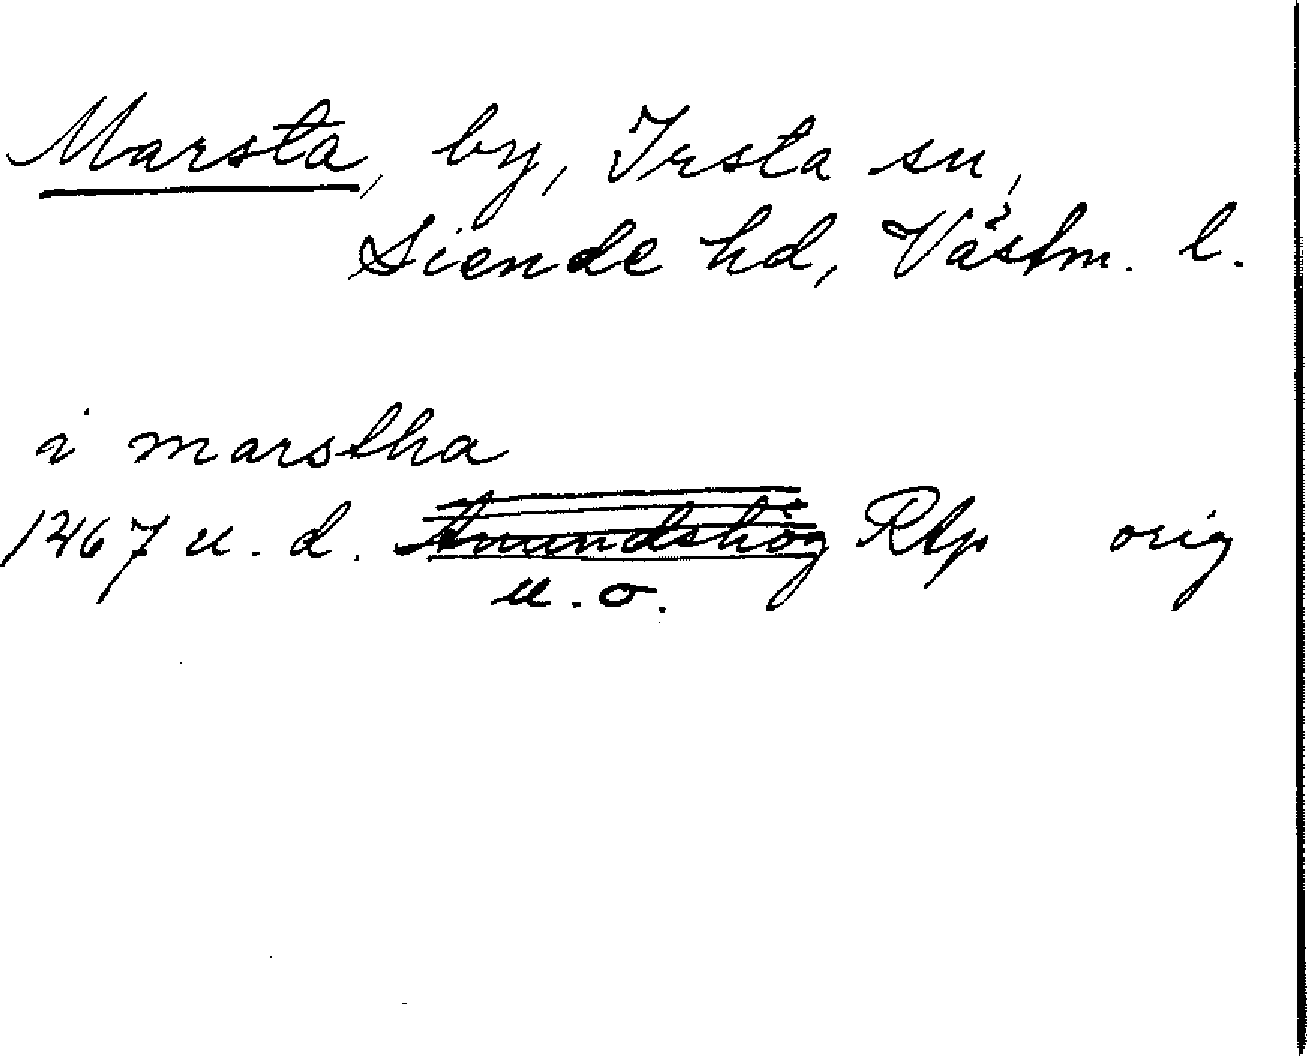 Marsta, by, Irsta sn,
Siende hd, Västm. l.
i marstha
1467 u. d. Anundshög Rtp orig
u. o.